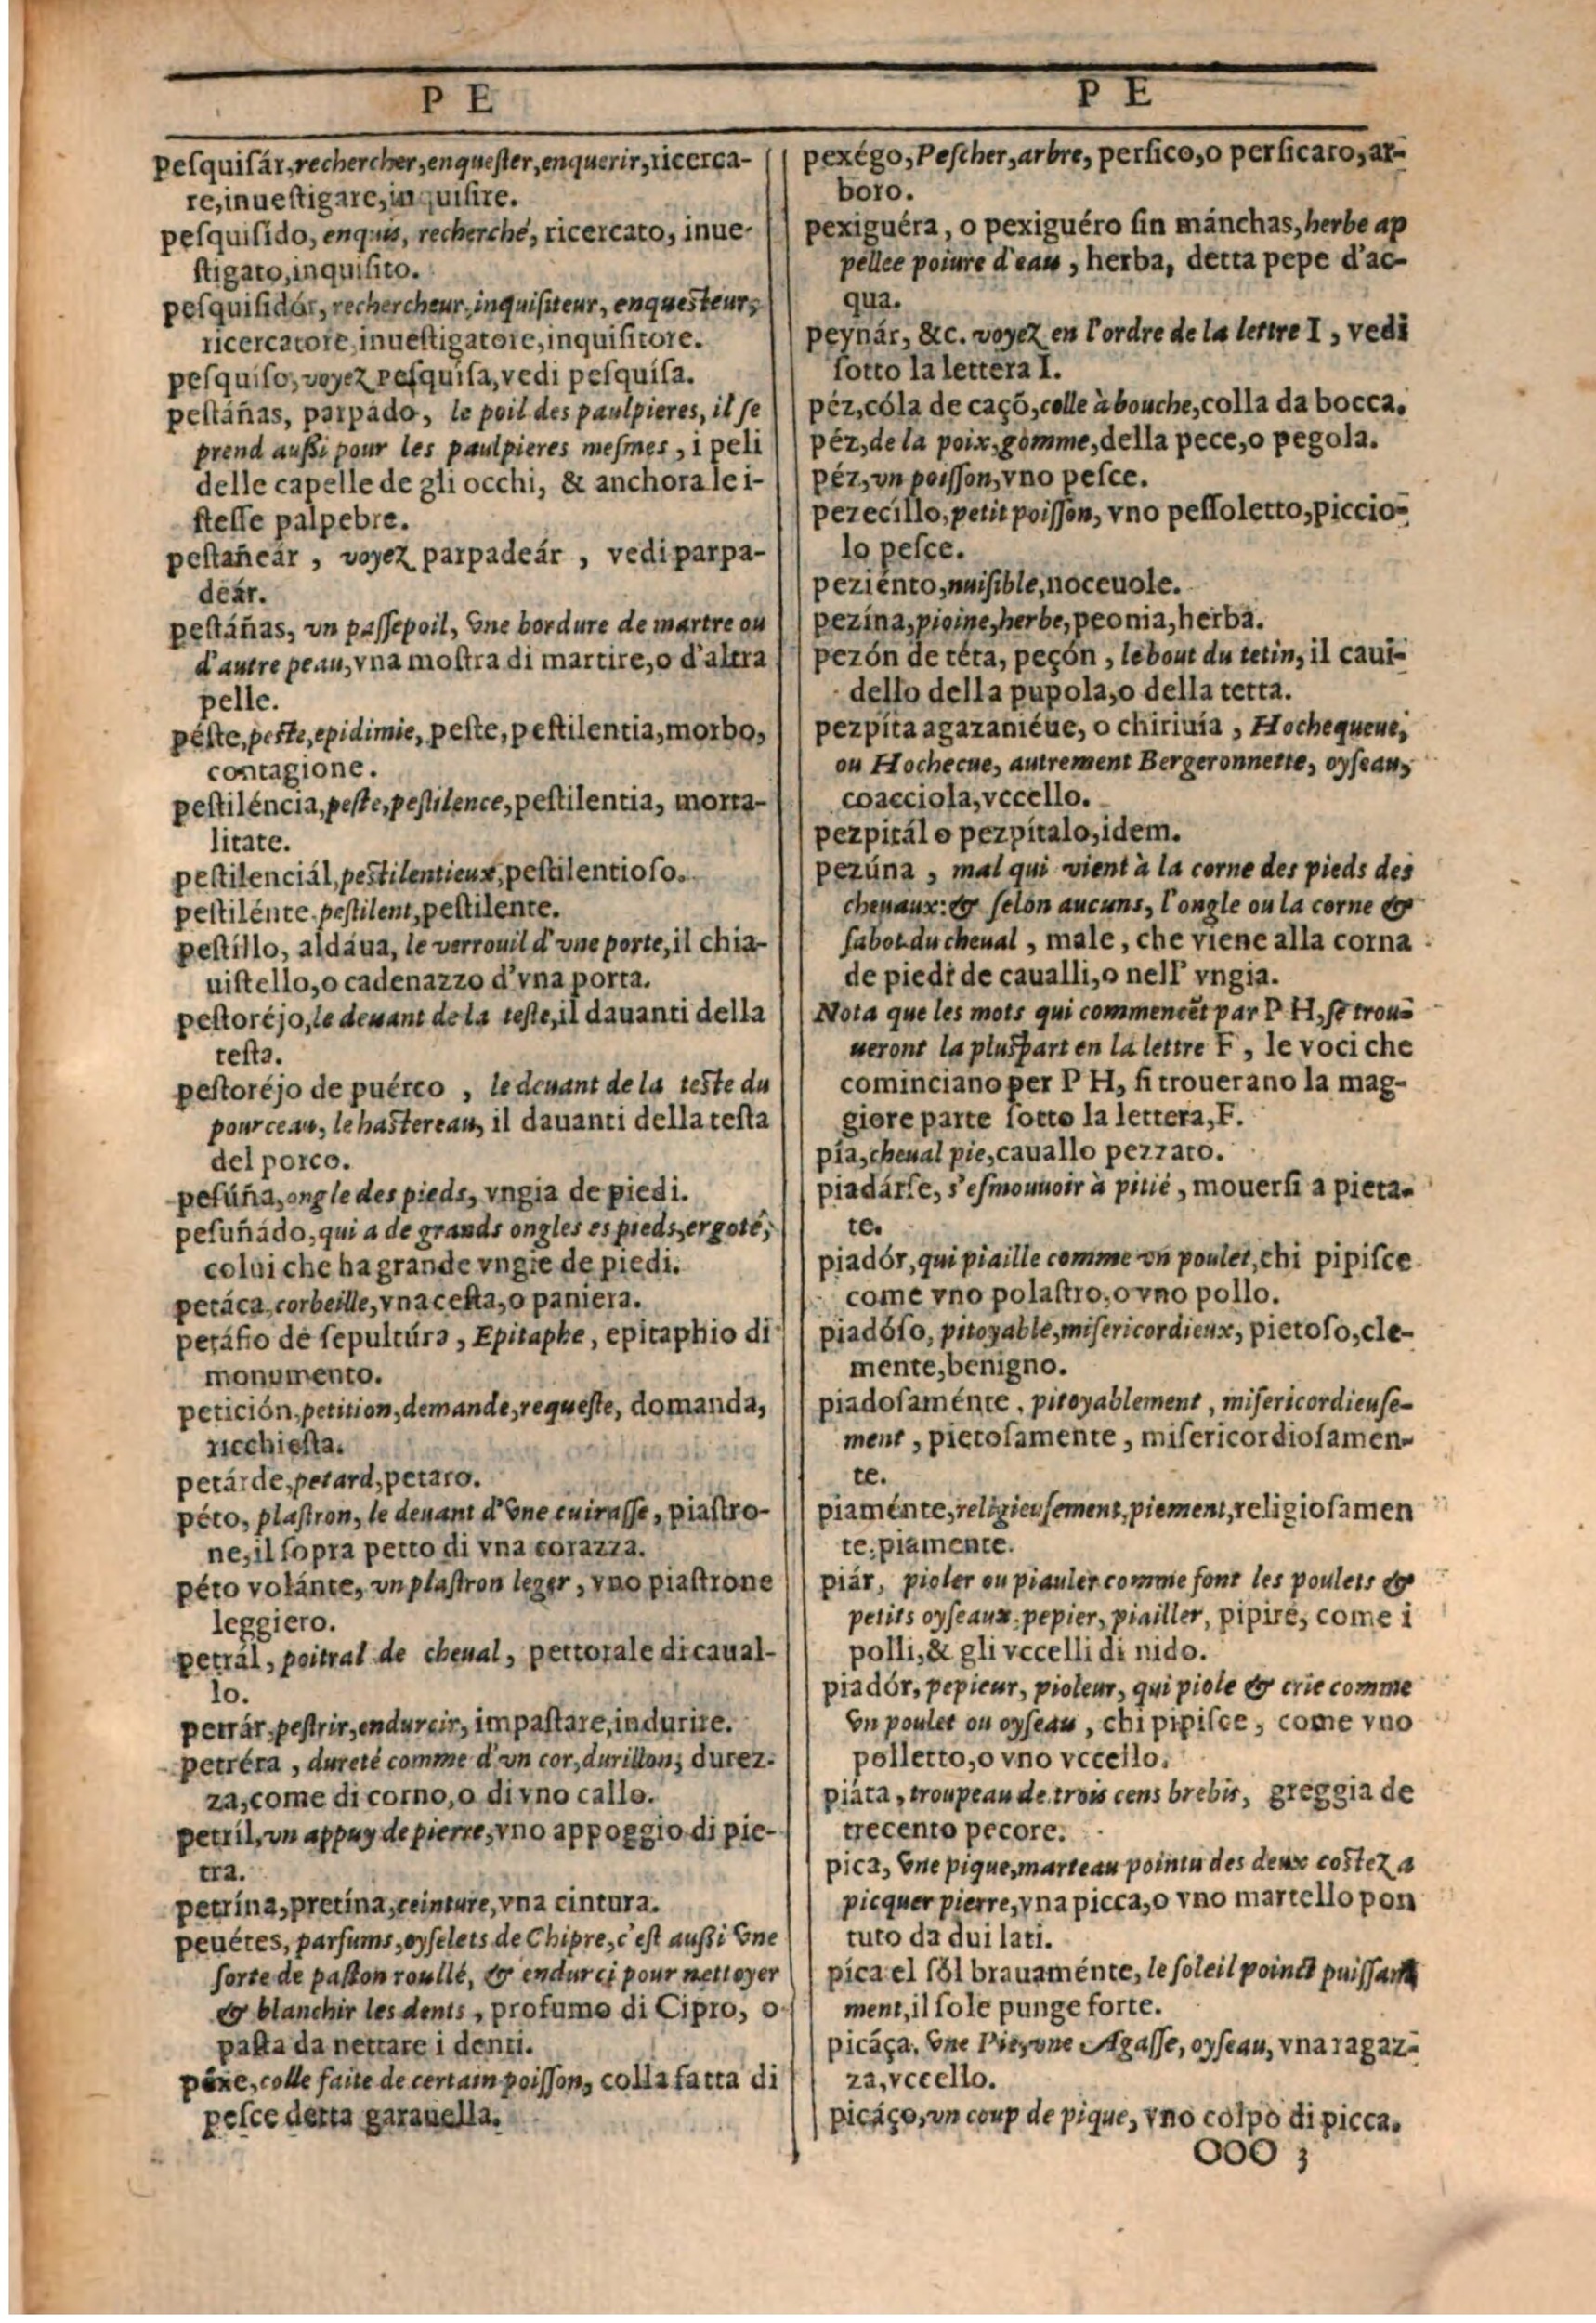 P E
peſquiſár, rechercher, enqueſter, enquerir, ricerca-
re, inueſtigare, inquiſire.
peſquiſido, enquis, recherché, ricercato, inue-
ſtigato, inquiſito.
peſquiſidór, rechercheur, inquiſiteur, enqueſteur,
ricercatore, inueſtigatore, inquiſitore.
peſquiſo, voyez peſquiſa, vedi peſquíſa.
peſtáñas, parpádo, le poil des paulpieres, il ſe
prend auſſi pour les paulpieres meſmes, i peli
delle capelle de gli occhi, & anchora le i-
ſteſſe palpebre.
peſtañeár, voyez parpadeár, vedi parpa-
deár.
peſtáñas, vn paſſepoil, vne bordure de martre ou
d'autre peau, vna moſtra di martire, o d'altra
pelle.
péſte, peſte, epidimie, peſte, peſtilentia, morbo,
contagione.
peſtiléncia, peſte, peſtilence, peſtilentia, morta-
litate.
peſtilenciál, peſtilentieux, peſtilentioſo.
peſtilénte, peſtilent, peſtilente.
peſtíllo, aldáua, le verrouil d'vne porte, il chia-
uiſtello, o cadenazzo d'vna porta.
peſtoréjo, le deuant de la teſte, il dauanti della
teſta.
peſtoréjo de puérco, le deuant de la teſte du
pourceau, le haſtereau, il dauanti della teſta
del porco.
peſúña, ongle des pieds, vngia de piedi.
peſuñádo, qui a de grands ongles es pieds, ergoté,
colui che ha grande vngie de piedi.
petáca, corbeille, vna ceſta, o paniera.
petáfio de ſepultúra, Epitaphe, epitaphio di
monumento.
petición, petition, demande, requeſte, domanda,
ricchieſta.
petárde, petard, petaro.
péto, plaſtron, le deuant d'vne cuiraſſe, piaſtro-
ne, il ſopra petto di vna corazza.
péto volánte, vn plaſtron leger, vno piaſtrone
leggiero.
petrál, poitral de cheual, pettorale di caual-
lo.
petrár, peſtrir, endurcir, impaſtare, indurire.
petréra, dureté comme d'vn cor, durillon, durez-
za, come di corno, o di vno callo.
petríl, vn appuy de pierre, vno appoggio di pie-
tra.
petrína, pretína, ceinture, vna cintura.
peuétes, parfums, oyſelets de Chipre, c'eſt auſſi vne
ſorte de paſton roullé, & endurci pour nettoyer
& blanchir les dents, profumo di Cipro, o
paſta da nettare i denti.
péxe, colle faite de certain poiſſon, colla fatta di
peſce detta garauella.
P E
pexégo, Peſcher, arbre, perſico, o perſicaro, ar-
boro.
pexiguéra, o pexiguéro ſin mánchas, herbe ap
pellee poiure d'eau, herba, detta pepe d'ac-
qua.
peynár, &c. voyez en l'ordre de la lettre I, vedi
ſotto la lettera I.
péz, cóla de caçõ, colle à bouche, colla da bocca.
péz, de la poix, gomme, della pece, o pegola.
péz, vn poiſſon, vno peſce.
pezecíllo, petit poiſſon, vno peſſoletto, piccio-
lo peſce.
peziénto, nuiſible, noceuole.
pezína, pioine, herbe, peonia, herba.
pezón de téta, peçón, le bout du tetin, il caui-
dello della pupola, o della tetta.
pezpíta agazaniéue, o chiriuía, Hochequeue,
ou Hochecue, autrement Bergeronnette, oyſeau,
coacciola, vccello.
pezpitál o pezpítalo, idem.
pezúna, mal qui vient à la corne des pieds des
cheuaux: & ſelon aucuns, l'ongle ou la corne &
ſabot du cheual, male, che viene alla corna
de piedi de caualli, o nell' vngia.
Nota que les mots qui commencẽt par P H, ſe trou-
ueront la pluſpart en la lettre F, le voci che
cominciano per P H, ſi trouerano la mag-
giore parte ſotto la lettera, F.
pía, cheual pie, cauallo pezzato.
piadárſe, s'eſmouuoir à pitié, mouerſi a pieta-
te.
piadór, qui piaille comme vn poulet, chi pipiſce
come vno polaſtro, o vno pollo.
piadóſo, pitoyable, miſericordieux, pietoſo, cle-
mente, benigno.
piadoſaménte, pitoyablement, miſericordieuſe-
ment, pietoſamente, miſericordioſamen-
te.
piaménte, religieuſement, piement, religioſamen
te, piamente.
piár, pioler ou piauler comme font les poulets &
petits oyſeaux, pepier, piailler, pipire, come i
polli, & gli vccelli di nido.
piadór, pepieur, pioleur, qui piole & crie comme
vn poulet ou oyſeau, chi pipiſce, come vno
polletto, o vno vccello.
piáta, troupeau de trois cens brebis, greggia de
trecento pecore.
pica, vne pique, marteau pointu des deux coſtez a
picquer pierre, vna picca, o vno martello pon
tuto da dui lati.
píca el ſól brauaménte, le ſoleil poinct puiſſam
ment, il ſole punge forte.
picáça, vne Pie, vne Agaſſe, oyſeau, vna ragaz-
za, vccello.
picáço, vn coup de pique, vno colpo di picca.
OOO 3